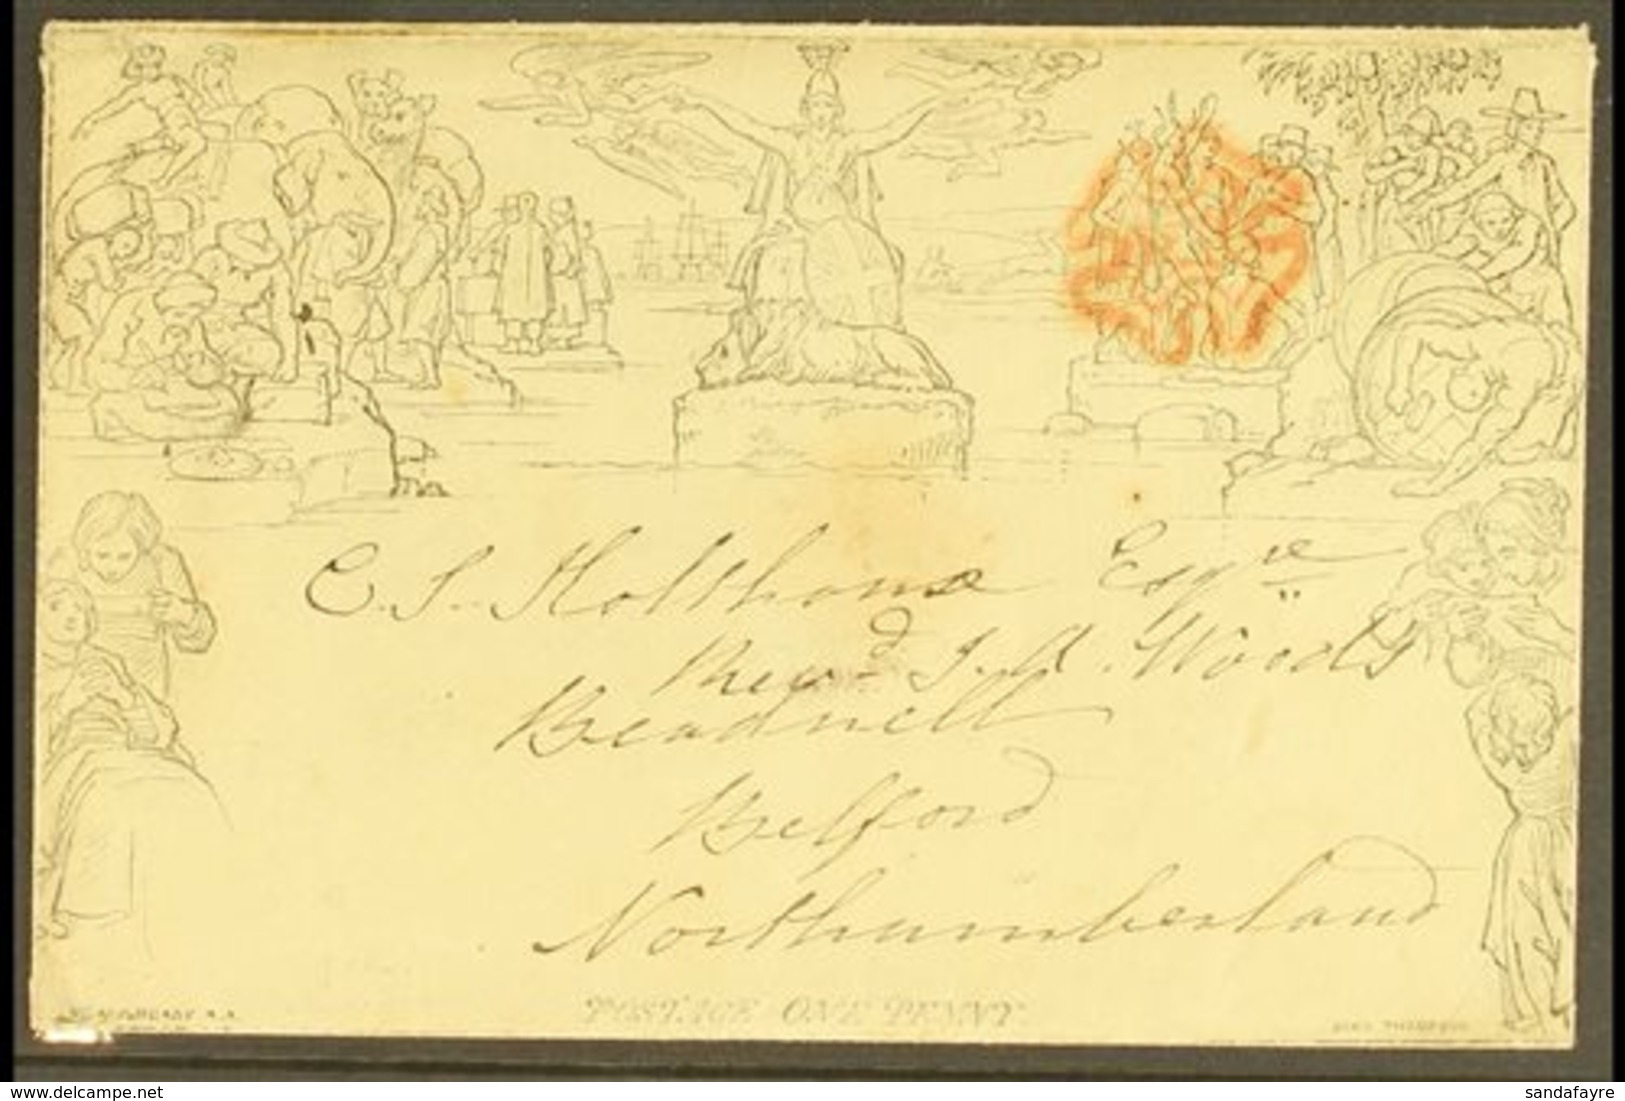 C. S. Holthouse Esqre
Revd J. A. Woods
Beadnell
Belford
Northumberland
W. MULREADY R.A.
POSTAGE ONE PENNY.
JOHN THOMPSON
www.delcampe.net
sandafayre